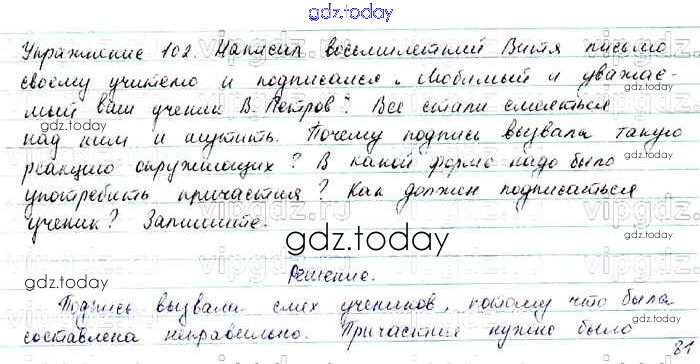 gdz.today
Упражнение 102. Написал восьмилетний Витя письмо
своему учителю и подписался „Любимый и уважае-
мый ваш ученик В. Петров“. Все стали смеяться
над ним и шутить. Почему подпись вызвала такую
реакцию окружающих? В какой форме надо было
употребить причастия? Как должен подписаться
ученик? Запишите.
gdz.today
Решение.
Подпись вызвала смех учеников, потому что была
составлена неправильно. Причастия нужно было